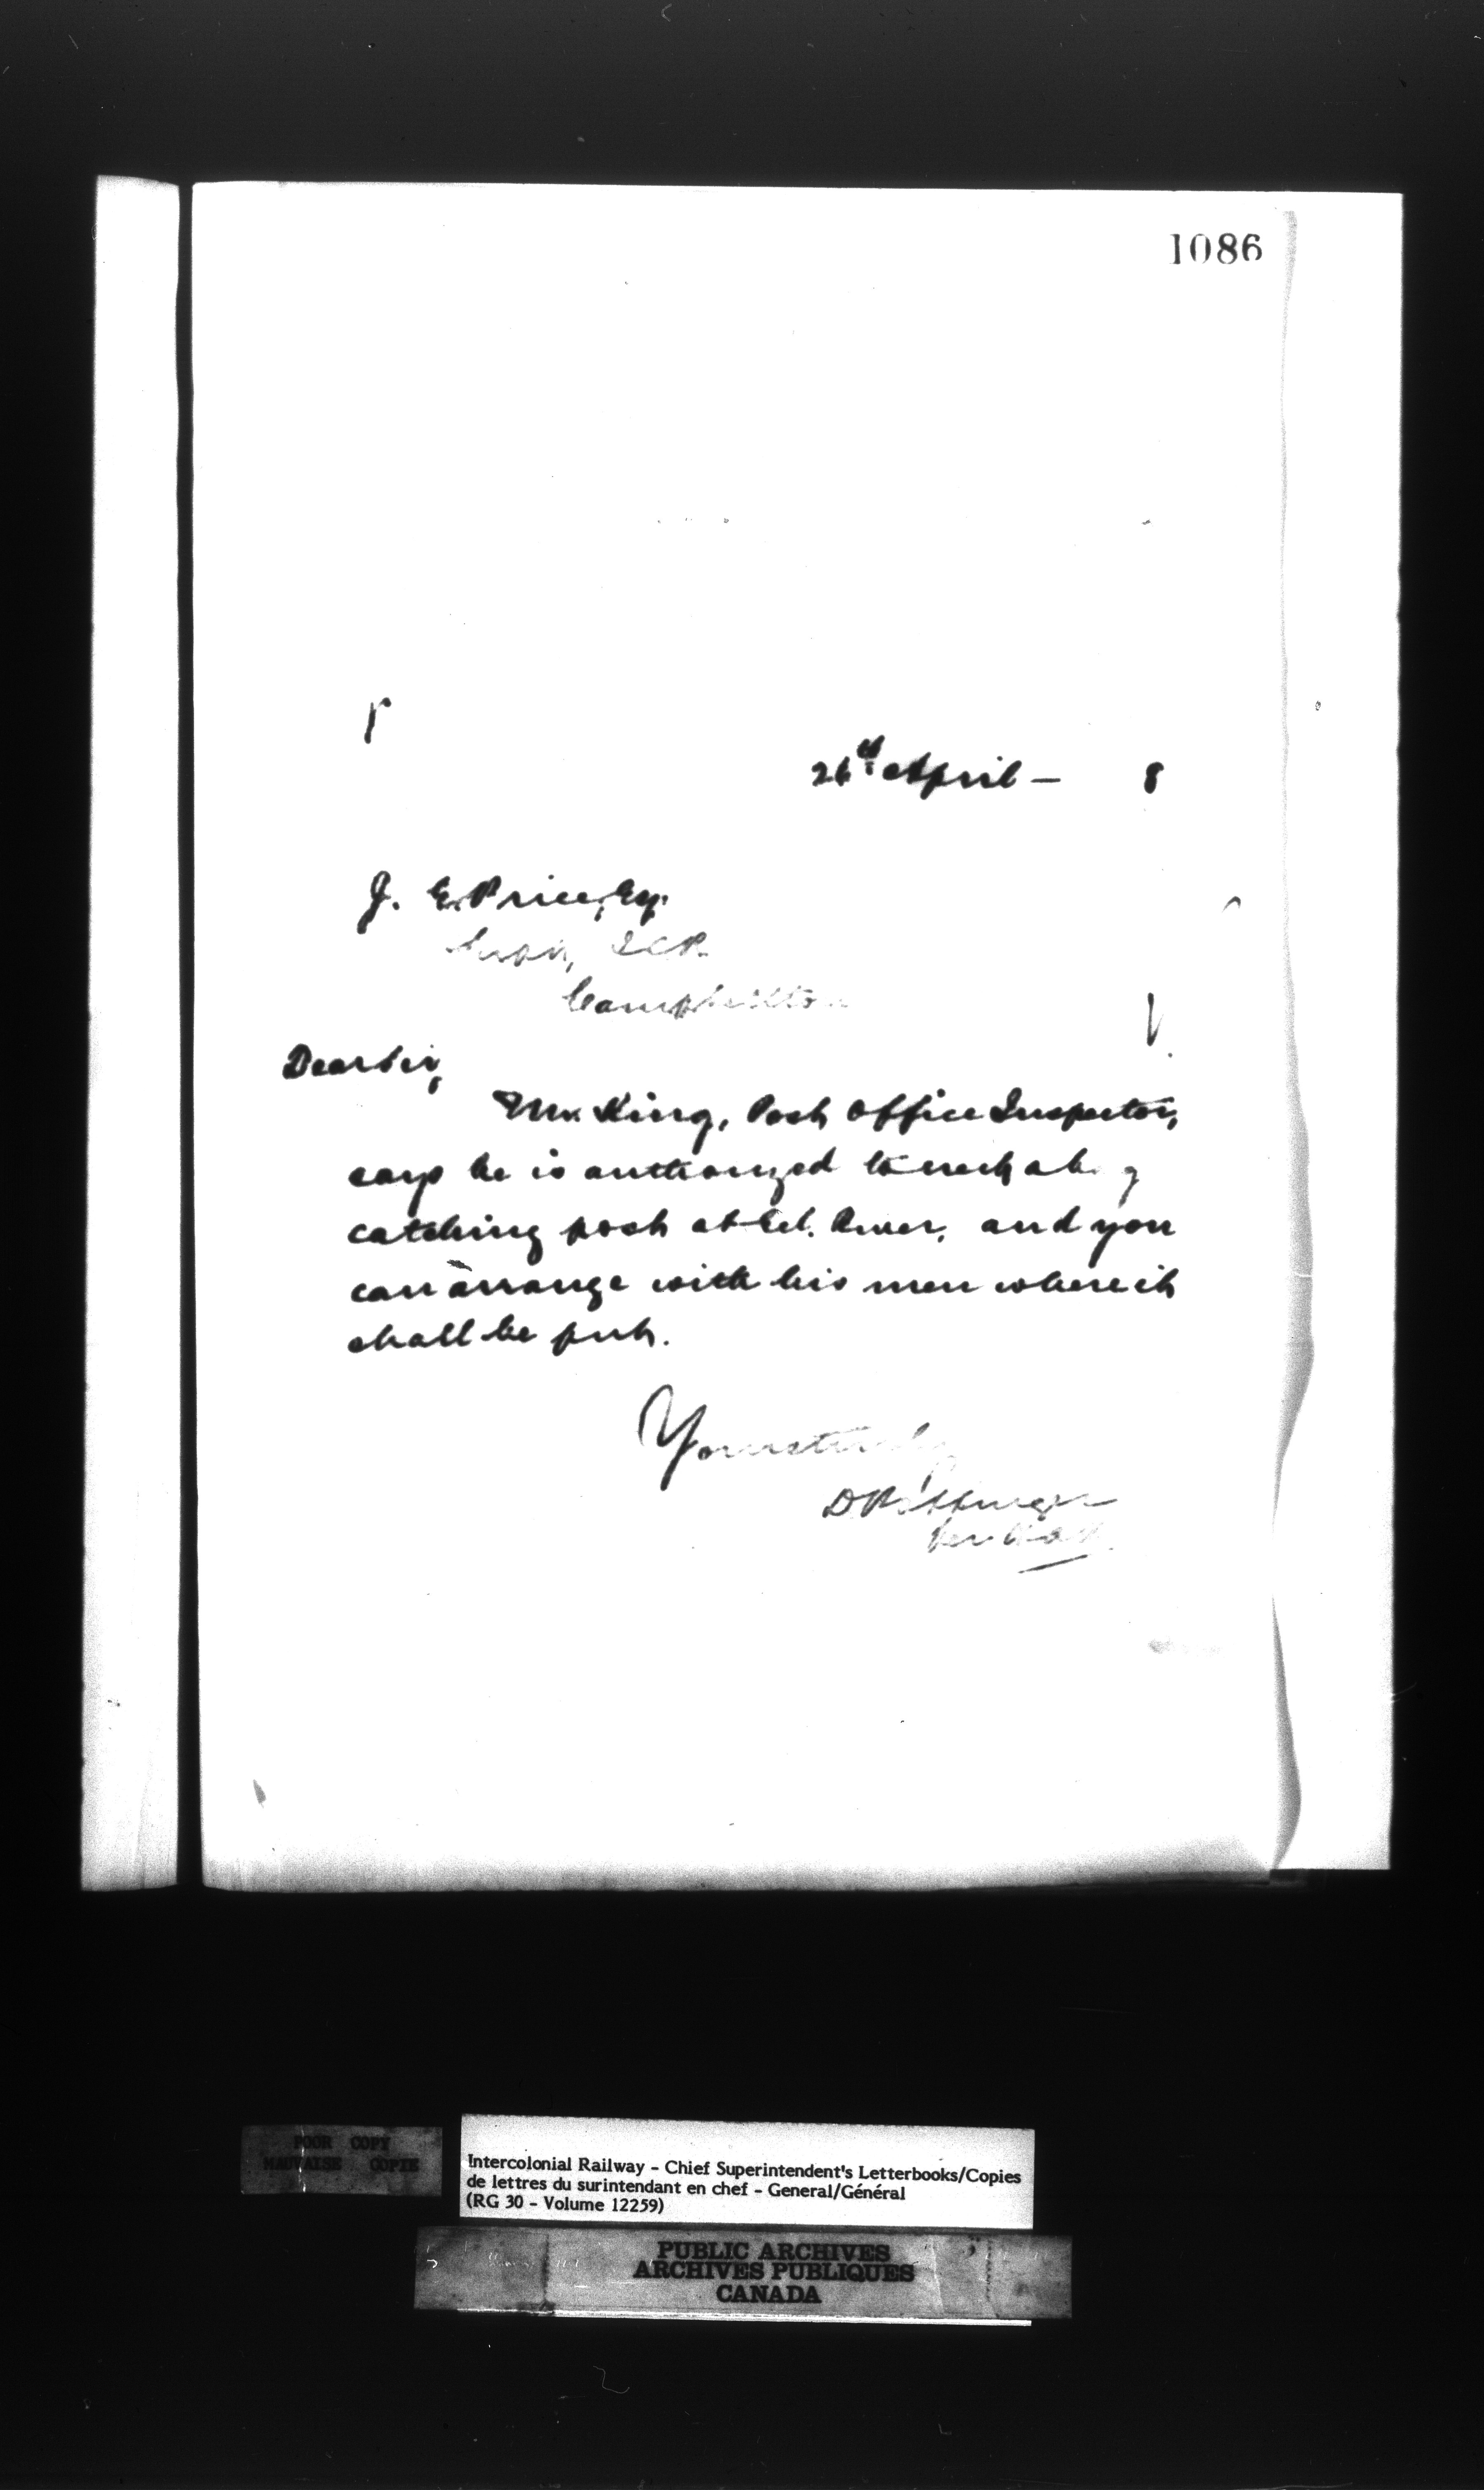 1086
26th April — 8
J. E. Price, Esq.
Supt, ICR.
Campbellton
Dear Sir,
Mr. King, Post Office Inspector,
says he is authorized to erect a
catching post at River, and you
can arrange with his men where it
shall be put.
Yours truly
D Pottinger
per
POOR COPY
MAUVAISE COPIE
Intercolonial Railway - Chief Superintendent's Letterbooks/Copies
de lettres du surintendant en chef - General/Général
(RG 30 - Volume 12259)
PUBLIC ARCHIVES
ARCHIVES PUBLIQUES
CANADA